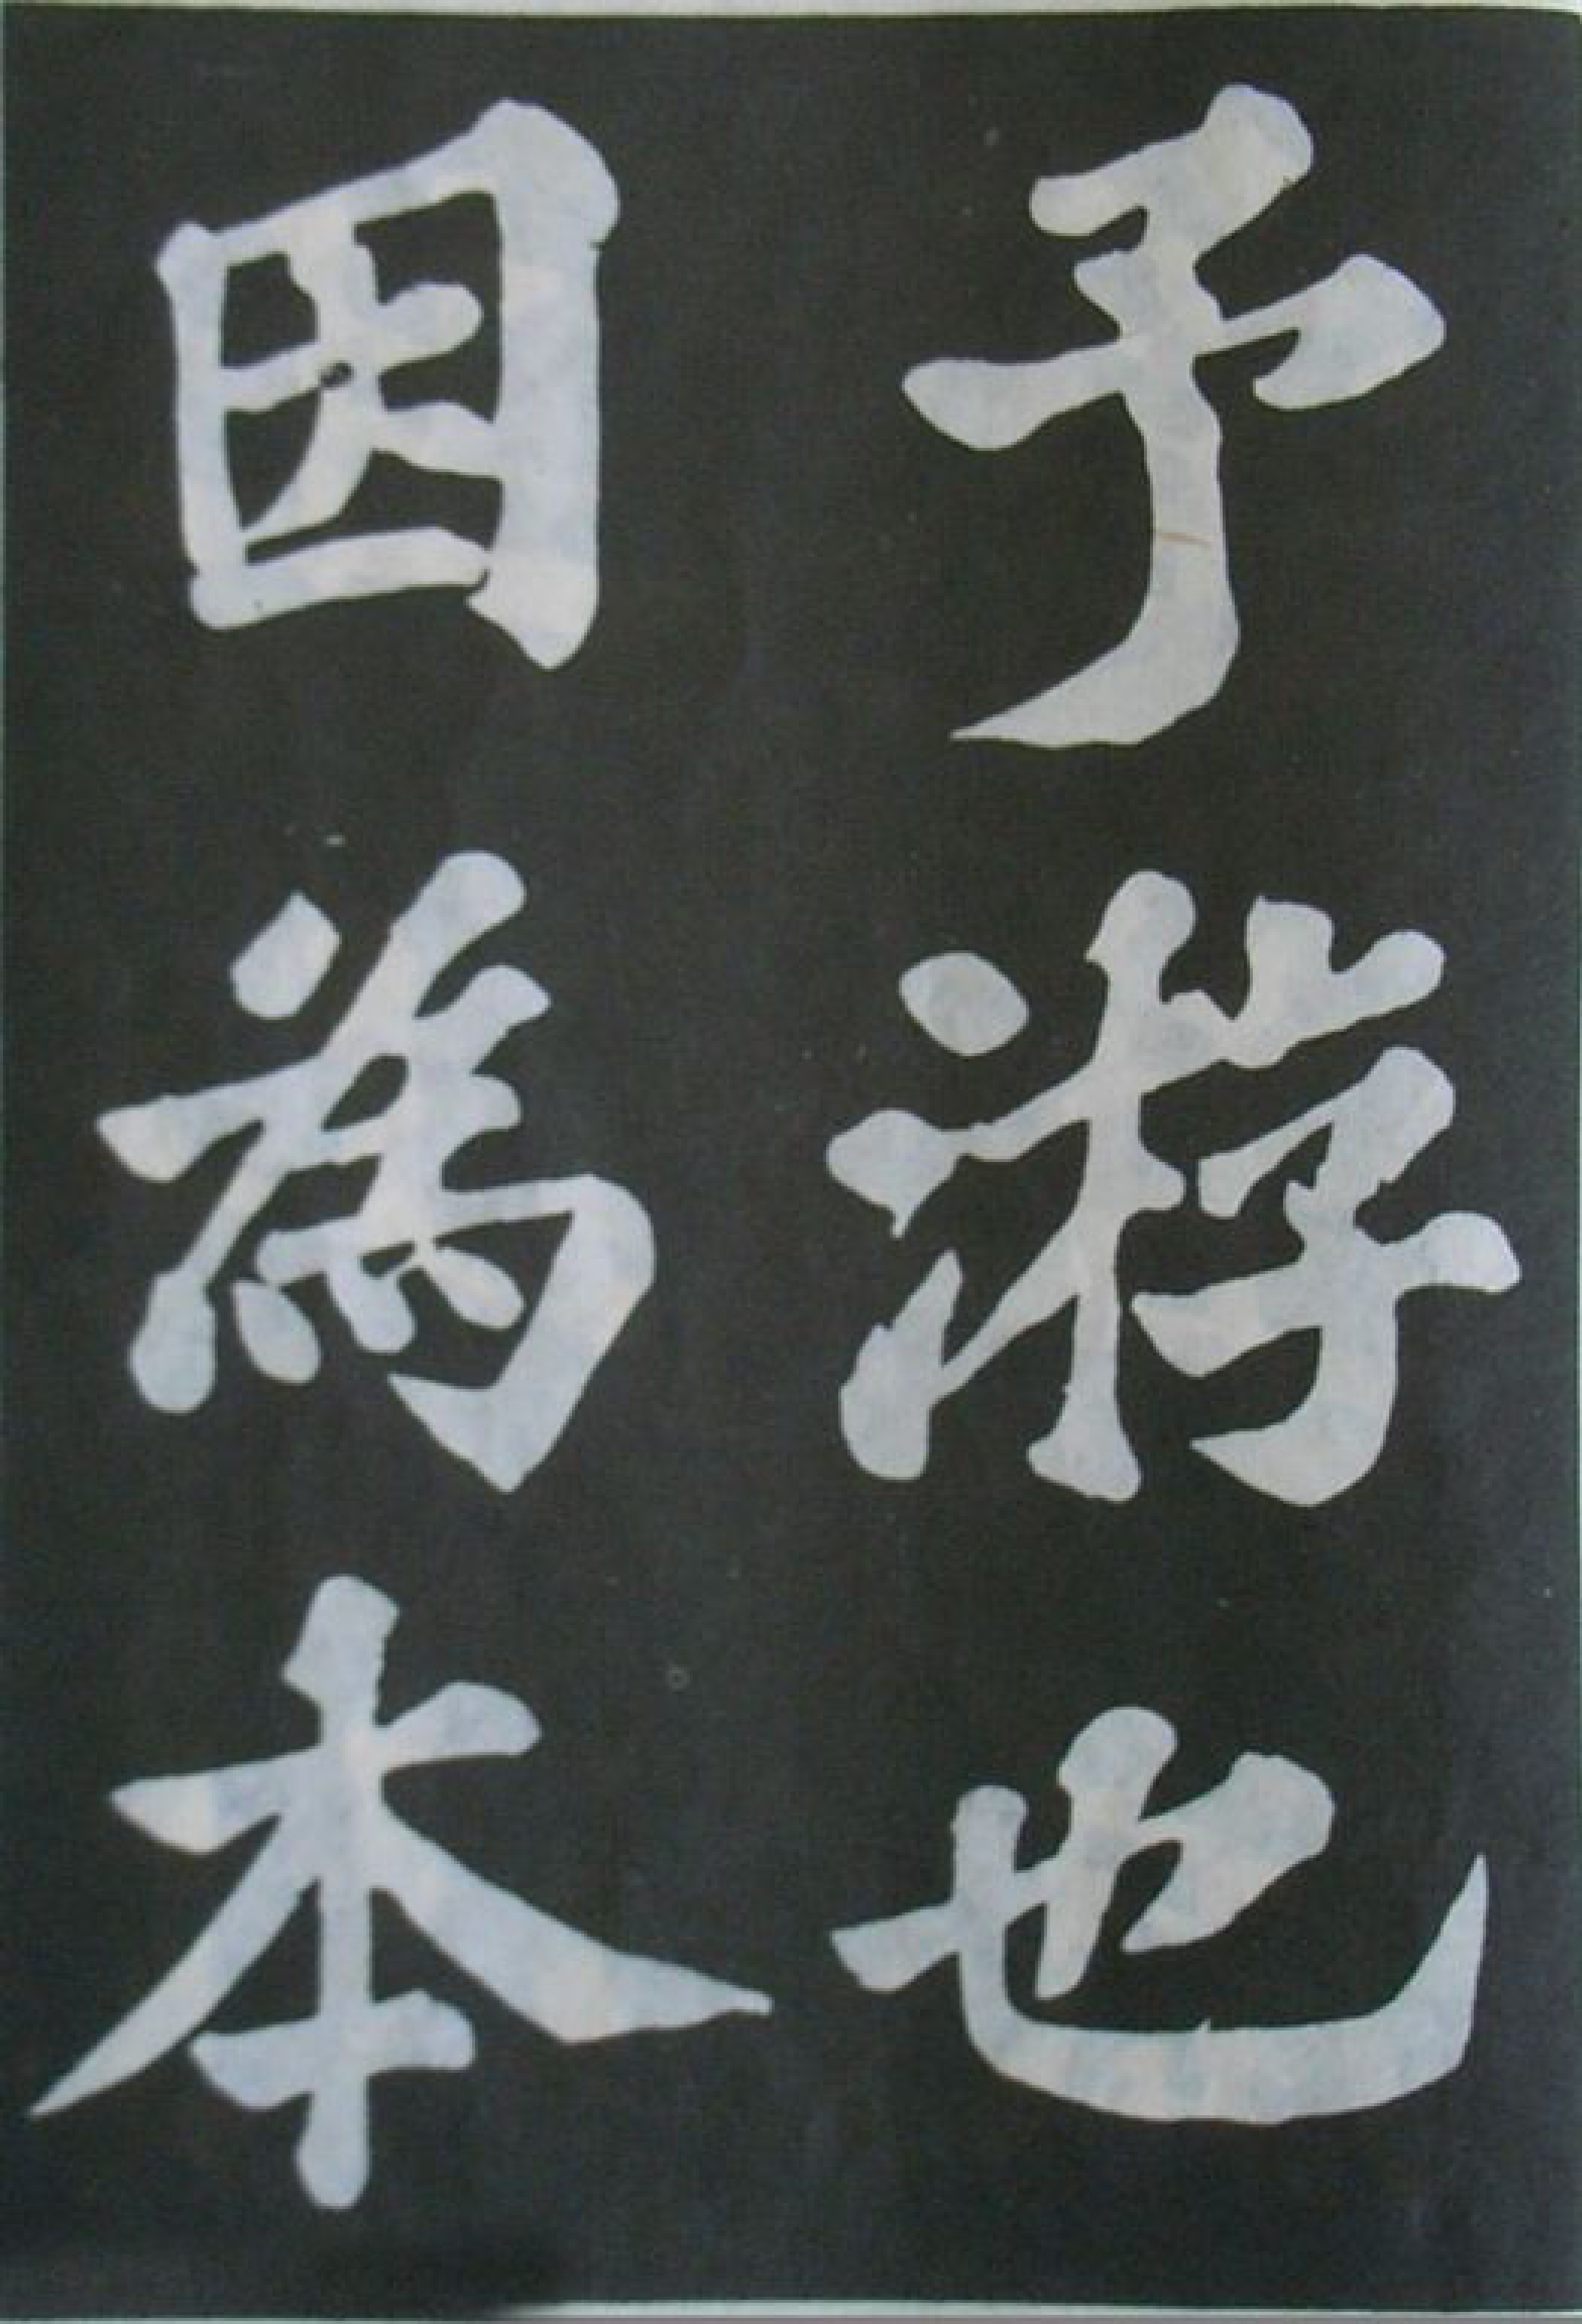 予游也
因為本